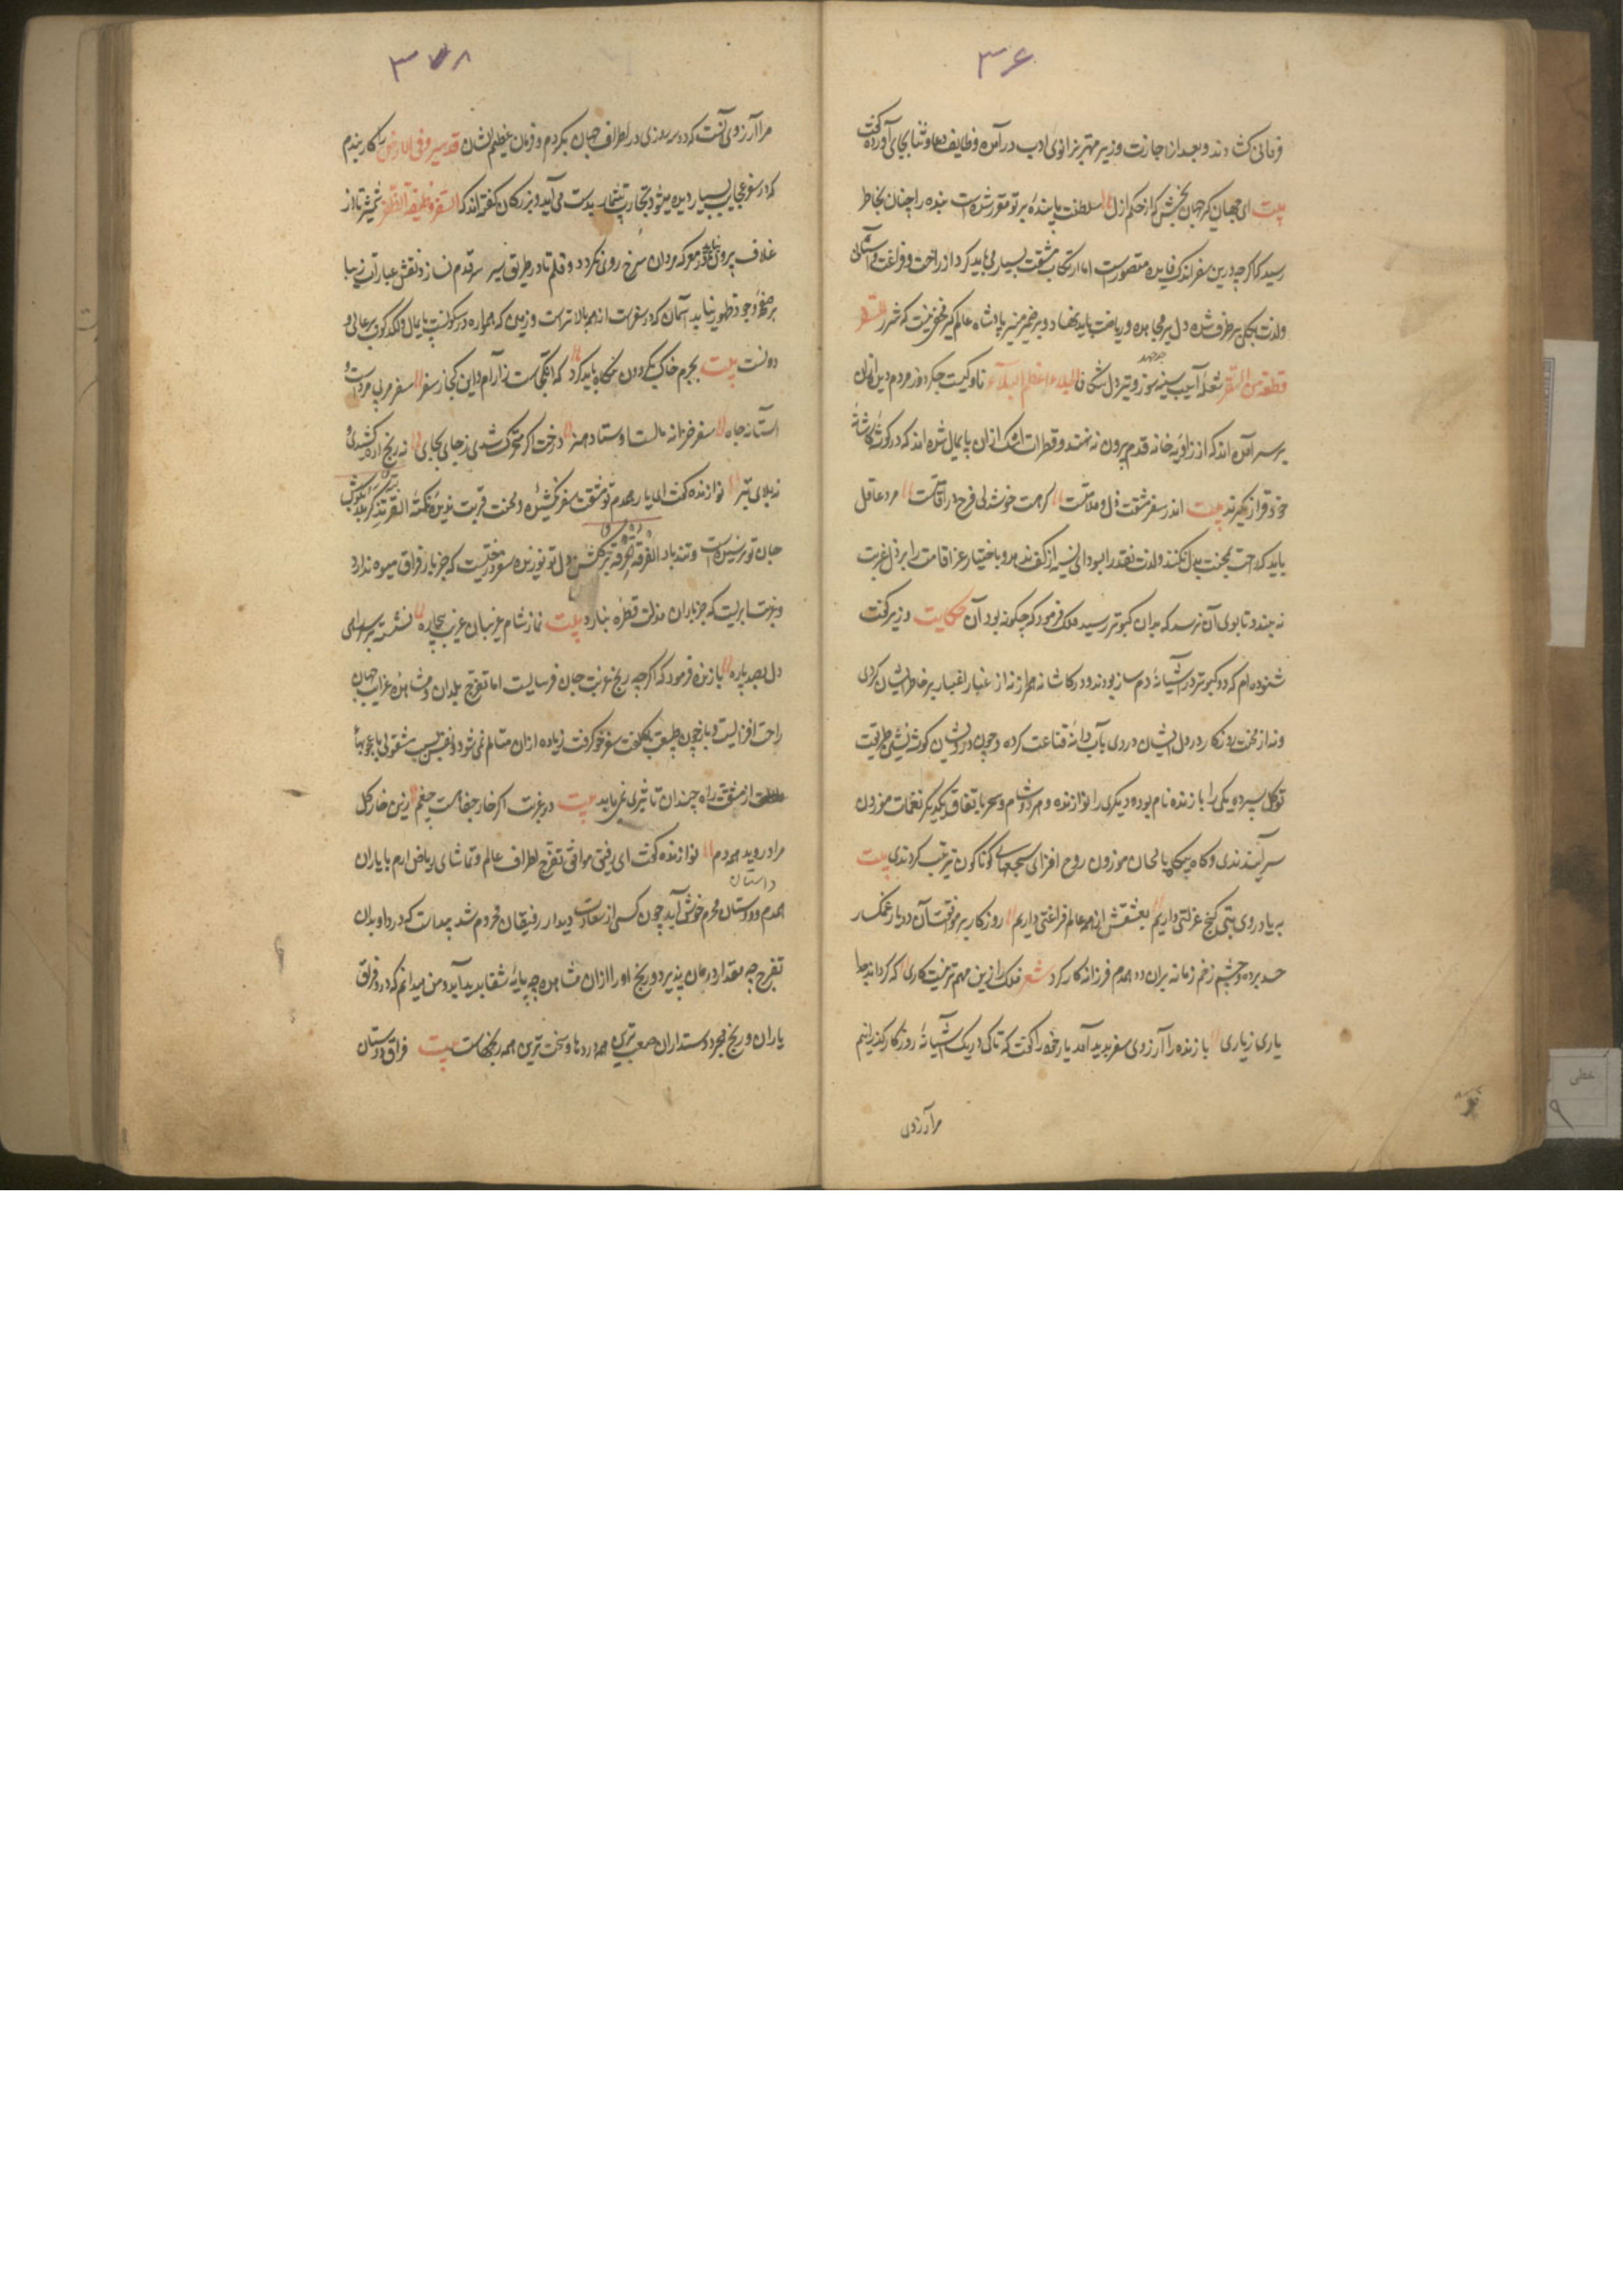 ۳۶
فرمانی کشادند و بعد از اجازت وزیر مهتر بزانوی ادب در آمده وظایف دعا و ثنا بجای آورده گفت
بیت ای جهان کیر جهان بخش که از حکم ازل سلطنت پاینده بر تو مقرر شده است بنده را چنان بخاطر
رسید که اکرچه درین سفر اندک فایده متصورست اما ارتکاب مشقت بسیار می باید کرد و از راحت و فراغت و آسانی
ولذت بکلی بر طرف شده دل بر مجاهده و ریاضت باید نهاد و بر ضمیر منیر پادشاه عالم کیر مخفی نیست که شرر السفر
قطعة من السقر شعله ایست سینه سوز و تیر دل شکاف الجلاء اعظم البلاء ناوکیست جکر دوز مردم دیده ازان
بر سر آمده اند که از زاویه خانه قدم بیرون نه نهند و قطرات اشک ازان پایمال شده اند که در کوشه کاشانه
خود قرار نکیرند بیت اندر سفر مشقت و ذل و ملامتست کر هست خوشدلی و فرح در اقامتست مرد عاقل
باید که راحت بمحنت بدل نکند و لذت نقد را بسودای نسیه از کف ندهد و باختیار عز اقامت را بر ذل غربت
نه بندد تا بوی آن نرسد که بدان کبوتر رسید ملک فرمود که چکونه بود آن حکایت وزیر کفت
شنوده ام که دو کبوتر در آشیانه دم ساز بودند و در کاشانه همراز نه از غبار اغیار بر خاطر ایشان کردی
و نه از محنت روزکار در دل ایشان دردی بآب و دانه قناعت کرده و چون درویشان کوشه نشین طریقت
توکل سپرده یکی را بازنده نام بود و دیکری را نوازنده و هر دو شام و سحر باتفاق یکدیکر نغمات موزون
سرآیندندی و کاه و بیکاه بالحان موزون روح افزای سجعهای کوناکون ترتیب کردندی بیت
به یاد روی بتی کنج عزلتی داریم بعشقش از همه عالم فراغتی داریم روزکار بر موافقت آن دو یار غمکسار
حسد برده و چشم زخم زمانه بران دو همدم فرزانه کار کرد شعر فلک را زین مهم تر نیست کاری که کرداند جدا
یاری ز یاری بازنده را آرزوی سفر پدید آمد یار خود را کفت که تا کی در یک آشیانه روزکار کذرانیم
مرا آرزوی
۳۷۸
مرا آرزوی آنست که دو سه روزی در اطراف جهان بکردم و فرمان عظیم الشان قد سیرو فی الارض را کار بندم
که در سفر عجایب بسیار دیده میشود و تجارب بیشمار بدست می آید و بزرکان کفته اند که السفر وسیلة الظفر شمشیر تا از
غلاف بیرون نیاید در معرکه مردان سرخ روی نکردد و قلم تا در طریق سیر سر قدم نسازد نقش عبارات زیبا
بر صفحه وجود ظهور نیابد آسمان که در سفرست از همه بالاترست و زمین که همواره در سکونست پایمال و لکدکوب هر عالی و
دونست بیت بجرم خاک و بکردون نکاه باید کرد که این کجاست ز آرام و این کجا ز سفر سفر مربی مردست و
آستانه جاه سفر خزانه مالست و اوستاد هنر درخت اکر متحرک شدی ز جای بجای نه رنج اره کشیدی و
نه بلای تبر نوازنده کفت ای یار همدم تو مشقت سفر نکشیده و محنت غربت ندیده و نکته الغربة کربة بکوش
جان تو نرسیده است و تند باد الفرقة حرقة بر کلشن دل تو نوزیده سفر درختیست که جز بار فراق میوه ندارد
و غربت ابریست که جز باران مذلت قطره نبارد بیت نماز شام غریبان غریب بیچاره نشسته بر سر راهی
دل بصد پاره بازنده فرمود که اکرچه رنج غربت جان فرساست اما تفرج بلدان و مشاهده غرایب جهان
راحت افزاست و باز چون طبیعت بکلفت سفر خو کرفت زیاده ازان متالم نمی شود و نفس بسبب مشغولی باعجوبهاء
از مشقت راه چندان تاثیری نمی یابد بیت در غربت اکر خار جفا هست چه غم زین خار کل
مراد روید هر دم نوازنده کفت ای رفیق موافق تفرج اطراف عالم و تماشای ریاض ارم با یاران
همدم و دوستان محرم خوش آید چون کسی از سعادت دیدار رفیقان محروم شد پیداست که درد او بدان
تفرج چه مقدار درمان پذیرد و رنج او را ازان مشاهده چه پایه شفا پدید آید و من میدانم که درد فراق
یاران و رنج هجر دوستداران صعب ترین همه دردها و سخت ترین همه رنجهاست بیت فراق دوستان